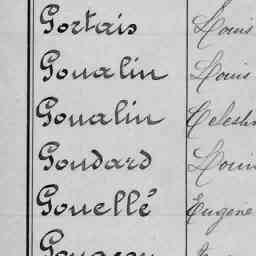 Gortais Louis
Goualin Louis
Goualin Celesti
Goudard Louis
Gouellé Eugène